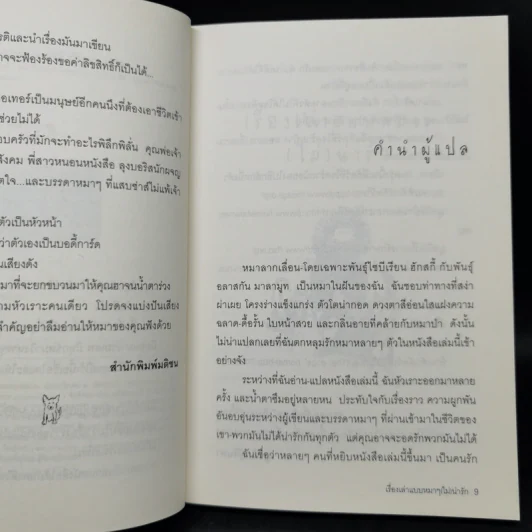 รติและนำเรื่องมันมาเขียน
าจจะฟ้องร้องขอค่าลิขสิทธิ์ก็เป็นได้...
อเทอร์เป็นมนุษย์อีกคนนึงที่ต้องเอาชีวิตเข้า
ช่วยไม่ได้
อบครัวที่มักจะทำอะไรพิลึกพิลั่น คุณพ่อเจ้า
สังคม พี่สาวหนอนหนังสือ ลุงบอริสนักผจญ
ตใจ...และบรรดาหมาๆ ที่แสบซ่าส์ไม่แพ้เจ้า
ตัวเป็นหัวหน้า
ว่าตัวเองเป็นบอดี้การ์ด
นเสียงดัง
มาที่จะยกขบวนมาให้คุณฮาจนน้ำตาร่วง
ามหัวเราะคนเดียว โปรดจงแบ่งปันเสียง
สำคัญอย่าลืมอ่านให้หมาของคุณฟังด้วย
สำนักพิมพ์มติชน
คำนำผู้แปล
หมาลากเลื่อน-โดยเฉพาะพันธุ์ไซบีเรียน ฮัสกี้ กับพันธุ์
อลาสกัน มาลามูท เป็นหมาในฝันของฉัน ฉันชอบท่าทางที่สง่า
ผ่าเผย โครงร่างแข็งแกร่ง ตัวโตน่ากอด ดวงตาสีอ่อนใสแฝงความ
ฉลาด-ดื้อรั้น ใบหน้าสวย และกลิ่นอายที่คล้ายกับหมาป่า ดังนั้น
ไม่น่าแปลกเลยที่ฉันตกหลุมรักหมาหลายๆ ตัวในหนังสือเล่มนี้เข้า
อย่างจัง
ระหว่างที่ฉันอ่าน-แปลหนังสือเล่มนี้ ฉันหัวเราะออกมาหลาย
ครั้ง และน้ำตาซึมอยู่หลายหน ประทับใจกับเรื่องราว ความผูกพัน
อันอบอุ่นระหว่างผู้เขียนและบรรดาหมาๆ ที่ผ่านเข้ามาในชีวิตของ
เขา-พวกมันไม่ได้น่ารักกันทุกตัว แต่คุณอาจจะอดรักพวกมันไม่ได้
ฉันเชื่อว่าหลายๆ คนที่หยิบหนังสือเล่มนี้ขึ้นมา เป็นคนรัก
เรื่องเล่าแบบหมาๆ(ไม่น่ารัก 9